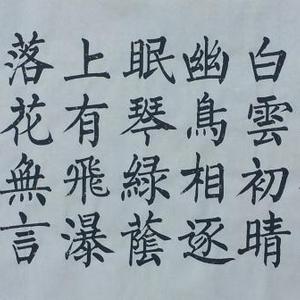 白雲初晴
幽鳥相逐
眠琴綠蔭
上有飛瀑
落花無言